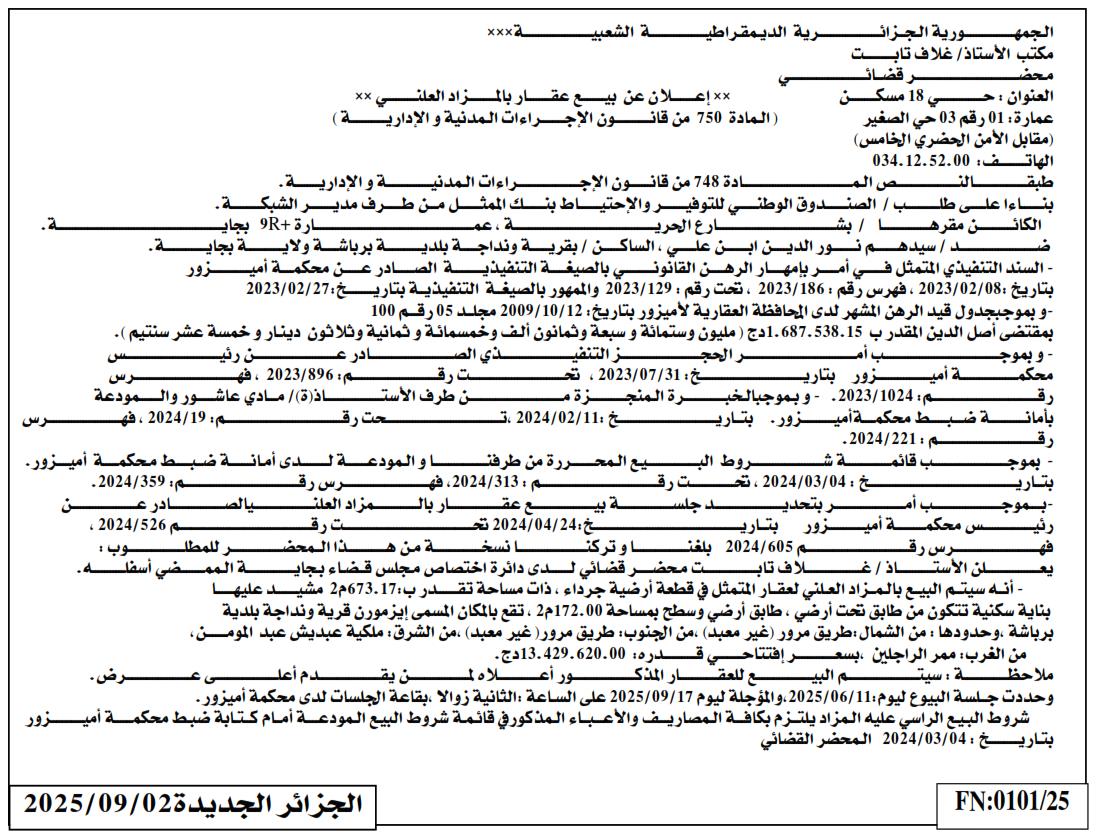 الجمهورية الجزائرية الديمقراطية الشعبية×××
مكتب الأستاذ/ غلاف تابت
محضر قضائي
العنوان : حي 18 مسكن ×× إعلان عن بيع عقار بالمزاد العلني ××
عمارة: 01 رقم 03 حي الصغير ( المادة 750 من قانون الإجراءات المدنية و الإدارية )
(مقابل الأمن الحضري الخامس)
الهاتف: 034.12.52.00
طبقا لنص المادة 748 من قانون الإجراءات المدنية و الإدارية .
بناءا على طلب / الصندوق الوطني للتوفير والإحتياط بنك الممثل من طرف مدير الشبكة .
الكائن مقرها / بشارع الحرية ، عمارة 9R+ بجاية .
ضد / سيدهم نور الدين ابن علي ، الساكن / بقرية ونداجة بلدية برباشة ولاية بجاية .
- السند التنفيذي المتمثل في أمر بإمهار الرهن القانوني بالصيغة التنفيذية الصادر عن محكمة أميزور
بتاريخ :2023/02/08 ، فهرس رقم : 2023/186 ، تحت رقم : 2023/129 والممهور بالصيغة التنفيذية بتاريخ :2023/02/27
-و بموجبجدول قيد الرهن المشهر لدى المحافظة العقارية لأميزور بتاريخ: 2009/10/12 مجلد 05 رقم 100
بمقتضى أصل الدين المقدر ب 1.687.538.15دج ( مليون وستمائة و سبعة وثمانون ألف وخمسمائة و ثمانية وثلاثون دينار و خمسة عشر سنتيم ) .
- و بموجب أمر الحجز التنفيذي الصادر عن رئيس
محكمة أميزور بتاريخ :2023/07/31 ، تحت رقم :2023/896 ، فهرس
رقم :2023/1024 . - و بموجبالخبرة المنجزة من طرف الأستاذ(ة)/ مادي عاشور والمودعة
بأمانة ضبط محكمةأميزور . بتاريخ :2024/02/11 ،تحت رقم :2024/19 ، فهرس
رقم :2024/221.
- بموجب قائمة شروط البيع المحررة من طرفنا و المودعة لدى أمانة ضبط محكمة أميزور .
بتاريخ : 2024/03/04 ، تحت رقم : 2024/313، فهرس رقم : 2024/359.
-بموجب أمر بتحديد جلسة بيع عقار بالمزاد العلنيالصادر عن
رئيس محكمة أميزور بتاريخ :2024/04/24 تحت رقم 2024/526 ،
فهرس رقم 2024/605 بلغنا و تركنا نسخة من هذا المحضر للمطلوب :
يعلن الأستاذ / غلاف تابت محضر قضائي لدى دائرة اختصاص مجلس قضاء بجاية الممضي أسفله .
- أنه سيتم البيع بالمزاد العلني لعقار المتمثل في قطعة أرضية جرداء ، ذات مساحة تقدر ب:673.17م2 مشيد عليها
بناية سكنية تتكون من طابق تحت أرضي ، طابق أرضي وسطح بمساحة 172.00م2 ، تقع بالمكان المسمى إيزمورن قرية ونداجة بلدية
برباشة ،وحدودها : من الشمال :طريق مرور (غير معبد) ،من الجنوب: طريق مرور( غير معبد) ،من الشرق: ملكية عبديش عبد المومن ،
من الغرب: ممر الراجلين ،بسعر إفتتاحي قدره: 13.429.620.00دج.
ملاحظة : سيتم البيع للعقار المذكور أعلاه لمن يقدم أعلى عرض .
وحددت جلسة البيوع ليوم:2025/06/11،والمؤجلة ليوم 2025/09/17 على الساعة :الثانية زوالا ،بقاعة الجلسات لدى محكمة أميزور.
شروط البيع الراسي عليه المزاد يلتزم بكافة المصاريف والأعباء المذكورفي قائمة شروط البيع المودعة أمام كتابة ضبط محكمة أميزور
بتاريخ : 2024/03/04 المحضر القضائي
FN:0101/25
الجزائر الجديدة2025/09/02